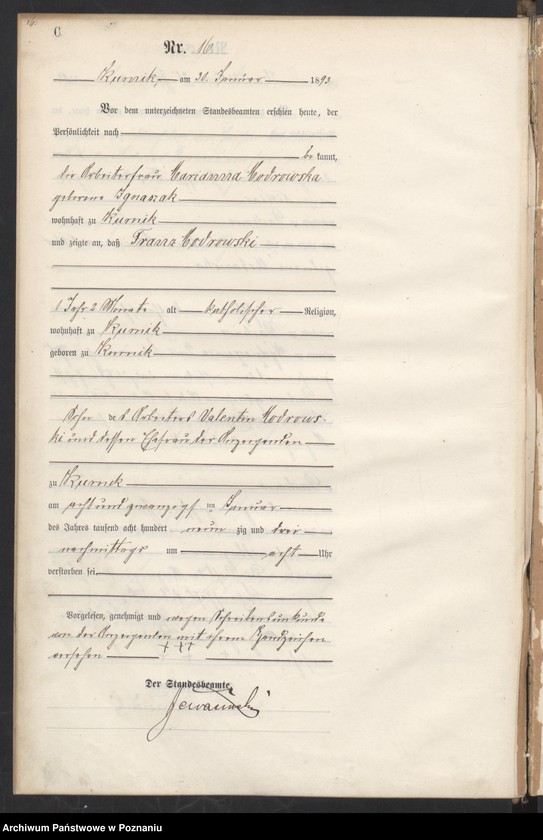 C.
Nr. 16
Kurnik, am 30. Januar 1893
Vor dem unterzeichneten Standesbeamten erschien heute, der
Persönlichkeit nach
be kannt,
die Arbeiterfrau Marianna Modrowska
geborene Ignaszak
wohnhaft zu Kurnik
und zeigte an, daß Franz Modrowski
1 Jahr 2 Monate alt katholischer Religion,
wohnhaft zu Kurnik
geboren zu Kurnik
Sohn des Arbeiters Valentin Modrows-
ki und dessen Ehefrau der Anzeigenden
zu Kurnik
am acht und zwanzigst en Januar
des Jahres tausend acht hundert neun zig und drei
nachmittags um acht Uhr
verstorben sei
Vorgelesen, genehmigt und wegen Schreibensunkunde
von der Anzeigenden mit ihrem Handzeichen
versehen
+++
Der Standesbeamte.
Archiwum Państwowe w Poznaniu